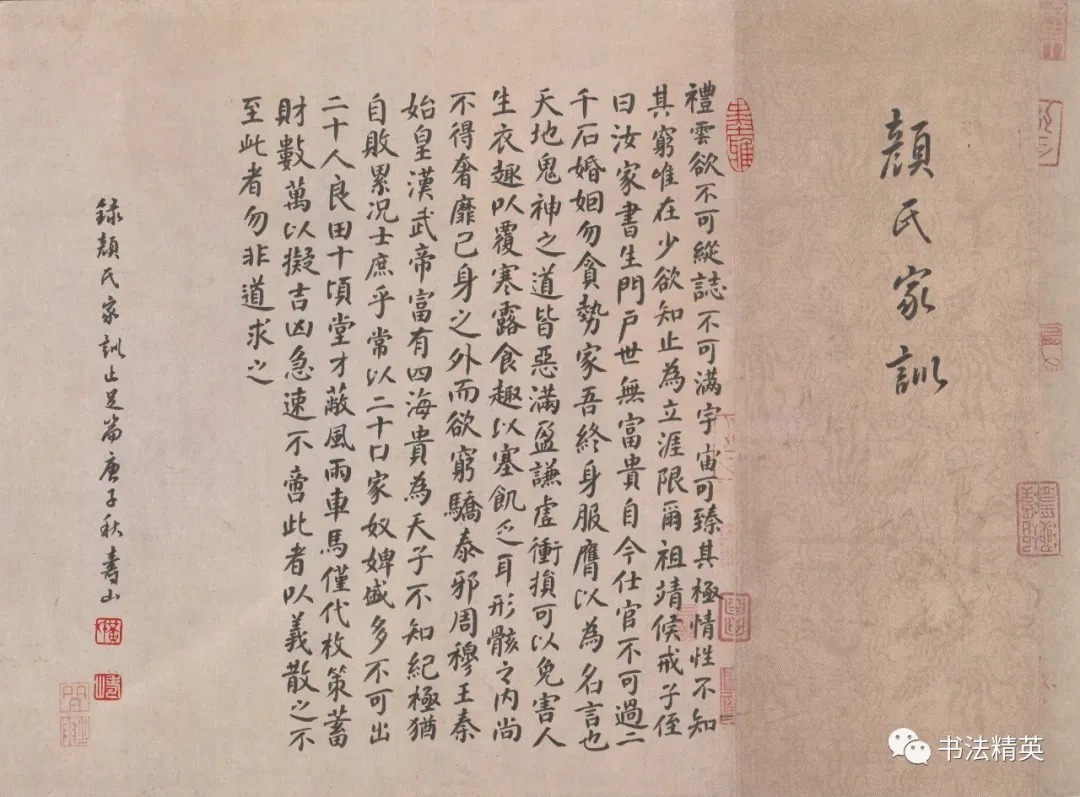 顏氏家訓
禮雲欲不可縱誌不可满宇宙可臻其極情性不知
其窮唯在少欲知止為立涯限爾祖靖候戒子侄
曰汝家書生門戸世無富貴自今仕官不可過二
千石婚姻勿貪勢家吾終身服膺以為名言也
天地鬼神之道皆惡满盈謙虛衝損可以免害人
生衣趣以覆寒露食趣以塞飢乏耳形骸之内尚
不得奢靡己身之外而欲窮驕泰邪周穆王秦
始皇漢武帝富有四海貴為天子不知紀極猶
自敗累况士庶乎常以二十口家奴婢盛多不可出
二十人良田十頃堂才蔽風雨車馬僅代杖策蓄
財數萬以擬吉凶急速不啻此者以義散之不
至此者勿非道求之
録顏氏家訓止足篇庚子秋書山
书法精英